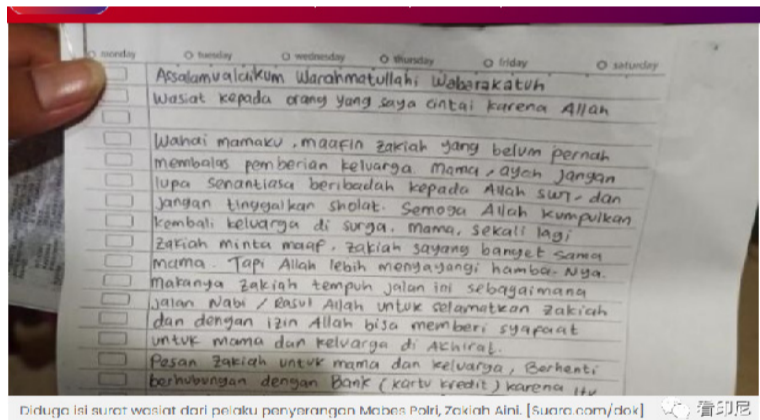 monday tuesday wednesday thursday friday saturday
Assalamualaikum Warahmatullahi Wabarakatuh
Wasiat kepada orang yang saya cintai karena Allah
Wahai mamaku, maafin zakiah yang belum pernah
membalas pemberian keluarga. Mama, ayah jangan
lupa senantiasa beribadah kepada Allah SWT, dan
jangan tinggalkan sholat. Semoga Allah kumpulkan
kembali keluarga di surga. Mama, sekali lagi
zakiah minta maaf. zakiah sayang banget sama
mama. Tapi Allah lebih menyayangi hamba-Nya.
makanya zakiah tempuh jalan ini sebagaimana
jalan Nabi / Rasul Allah untuk selamatkan zakiah
dan dengan izin Allah bisa memberi syapaat
untuk mama dan keluarga di Akhirat.
Pesan zakiah untuk mama dan keluarga, Berhenti
berhubungan dengan Bank (kartu kredit) karena itu
Diduga isi surat wasiat dari pelaku penyerangan Mabes Polri, Zakiah Aini. [Suara.com/dok]
看印尼